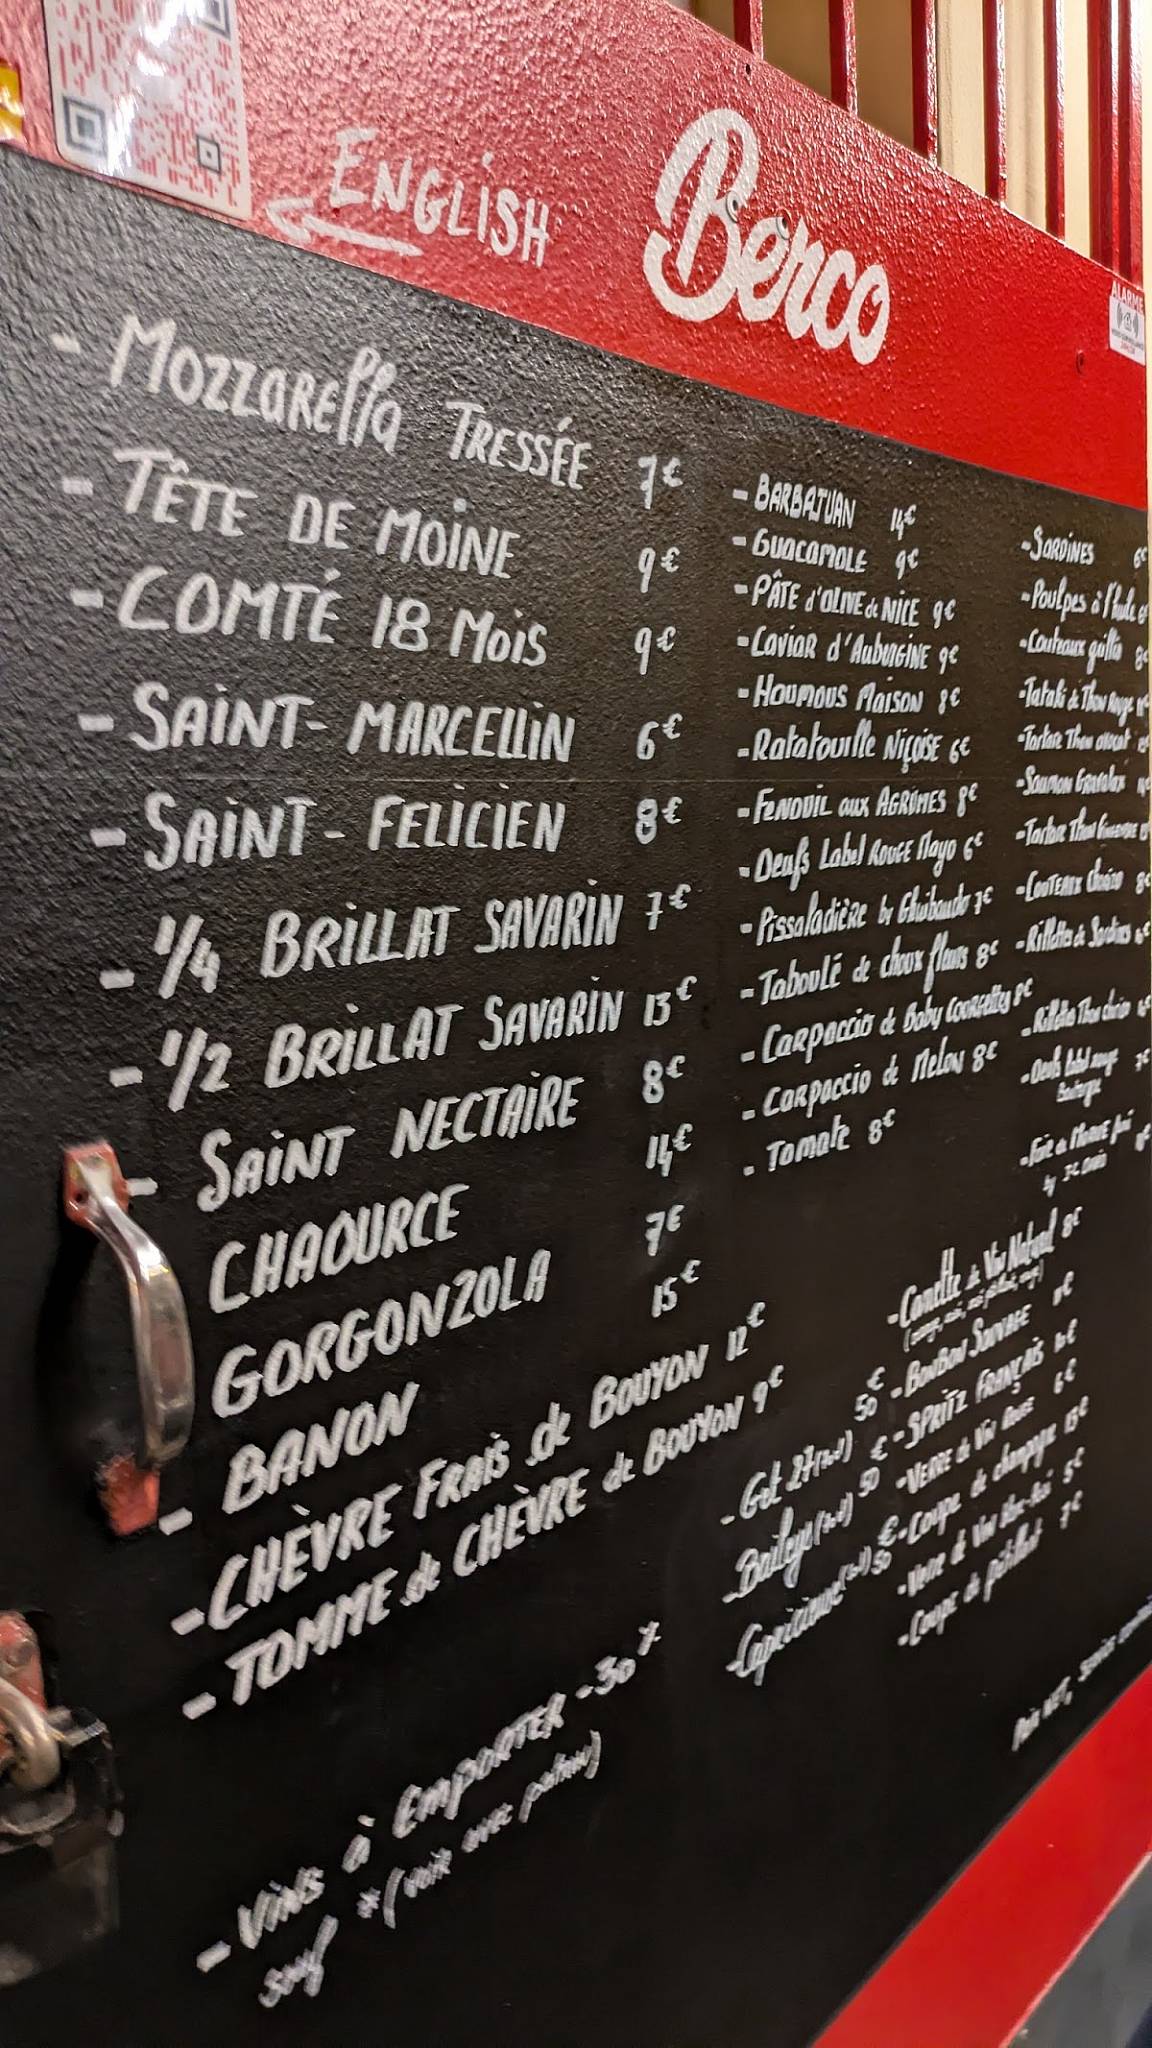 ENGLISH
Berco
ALARME
- MOZZARELLA TRESSÉE 7€
- TÊTE DE MOINE 9€
- COMTÉ 18 MOIS 9€
- SAINT-MARCELLIN 6€
- SAINT-FELICIEN 8€
- 1/4 BRILLAT SAVARIN 7€
- 1/2 BRILLAT SAVARIN 13€
- SAINT NECTAIRE 8€
CHAOURCE 14€
GORGONZOLA 7€
- BANON 15€
- CHÈVRE FRAIS de BOUYON 12€
- TOMME de CHÈVRE de BOUYON 9€
- VINS à EMPORTER -30%
sauf *(voir avec patron)
- BARBAJUAN 14€
- GUACAMOLE 9€
- PÂTE d'OLIVE de NICE 9€
- CAVIAR d'AUBERGINE 9€
- HOUMOUS MAISON 8€
- Ratatouille NIÇOISE 6€
- FENOUIL aux AGRUMES 8€
- Oeufs Label ROUGE Mayo 6€
- Pissaladière by Ghibaudo 7€
- Taboulé de choux fleurs 8€
- CARPACCIO de Baby COURGETTES 8€
- CARPACCIO de MELON 8€
- Tomate 8€
- SARDINES 6€
- Poulpes à l'huile
- Couteaux grillés 8€
- Tataki de Thon Rouge
- Tartare Thon avocat
- SAUMON Gravelax
- Tartare Thon GINGEMBRE
- COUTEAUX Chorizo 8€
- Rillettes de Sardines
- Rillettes Thon chorizo
- Oeufs label rouge 7€
- Foie de
by
- Canette de Vin Naturel 8€
- BONBON SAUVAGE
- SPRITZ FRANÇAIS
- VERRE de VIN ROUGE 6€
- Coupe de champagne 15€
- Verre de Vin 5€
- Coupe de pétillant 7€
- Get 27 50€
- Baileys 50€
- 50€
Prix NET, SERVICE